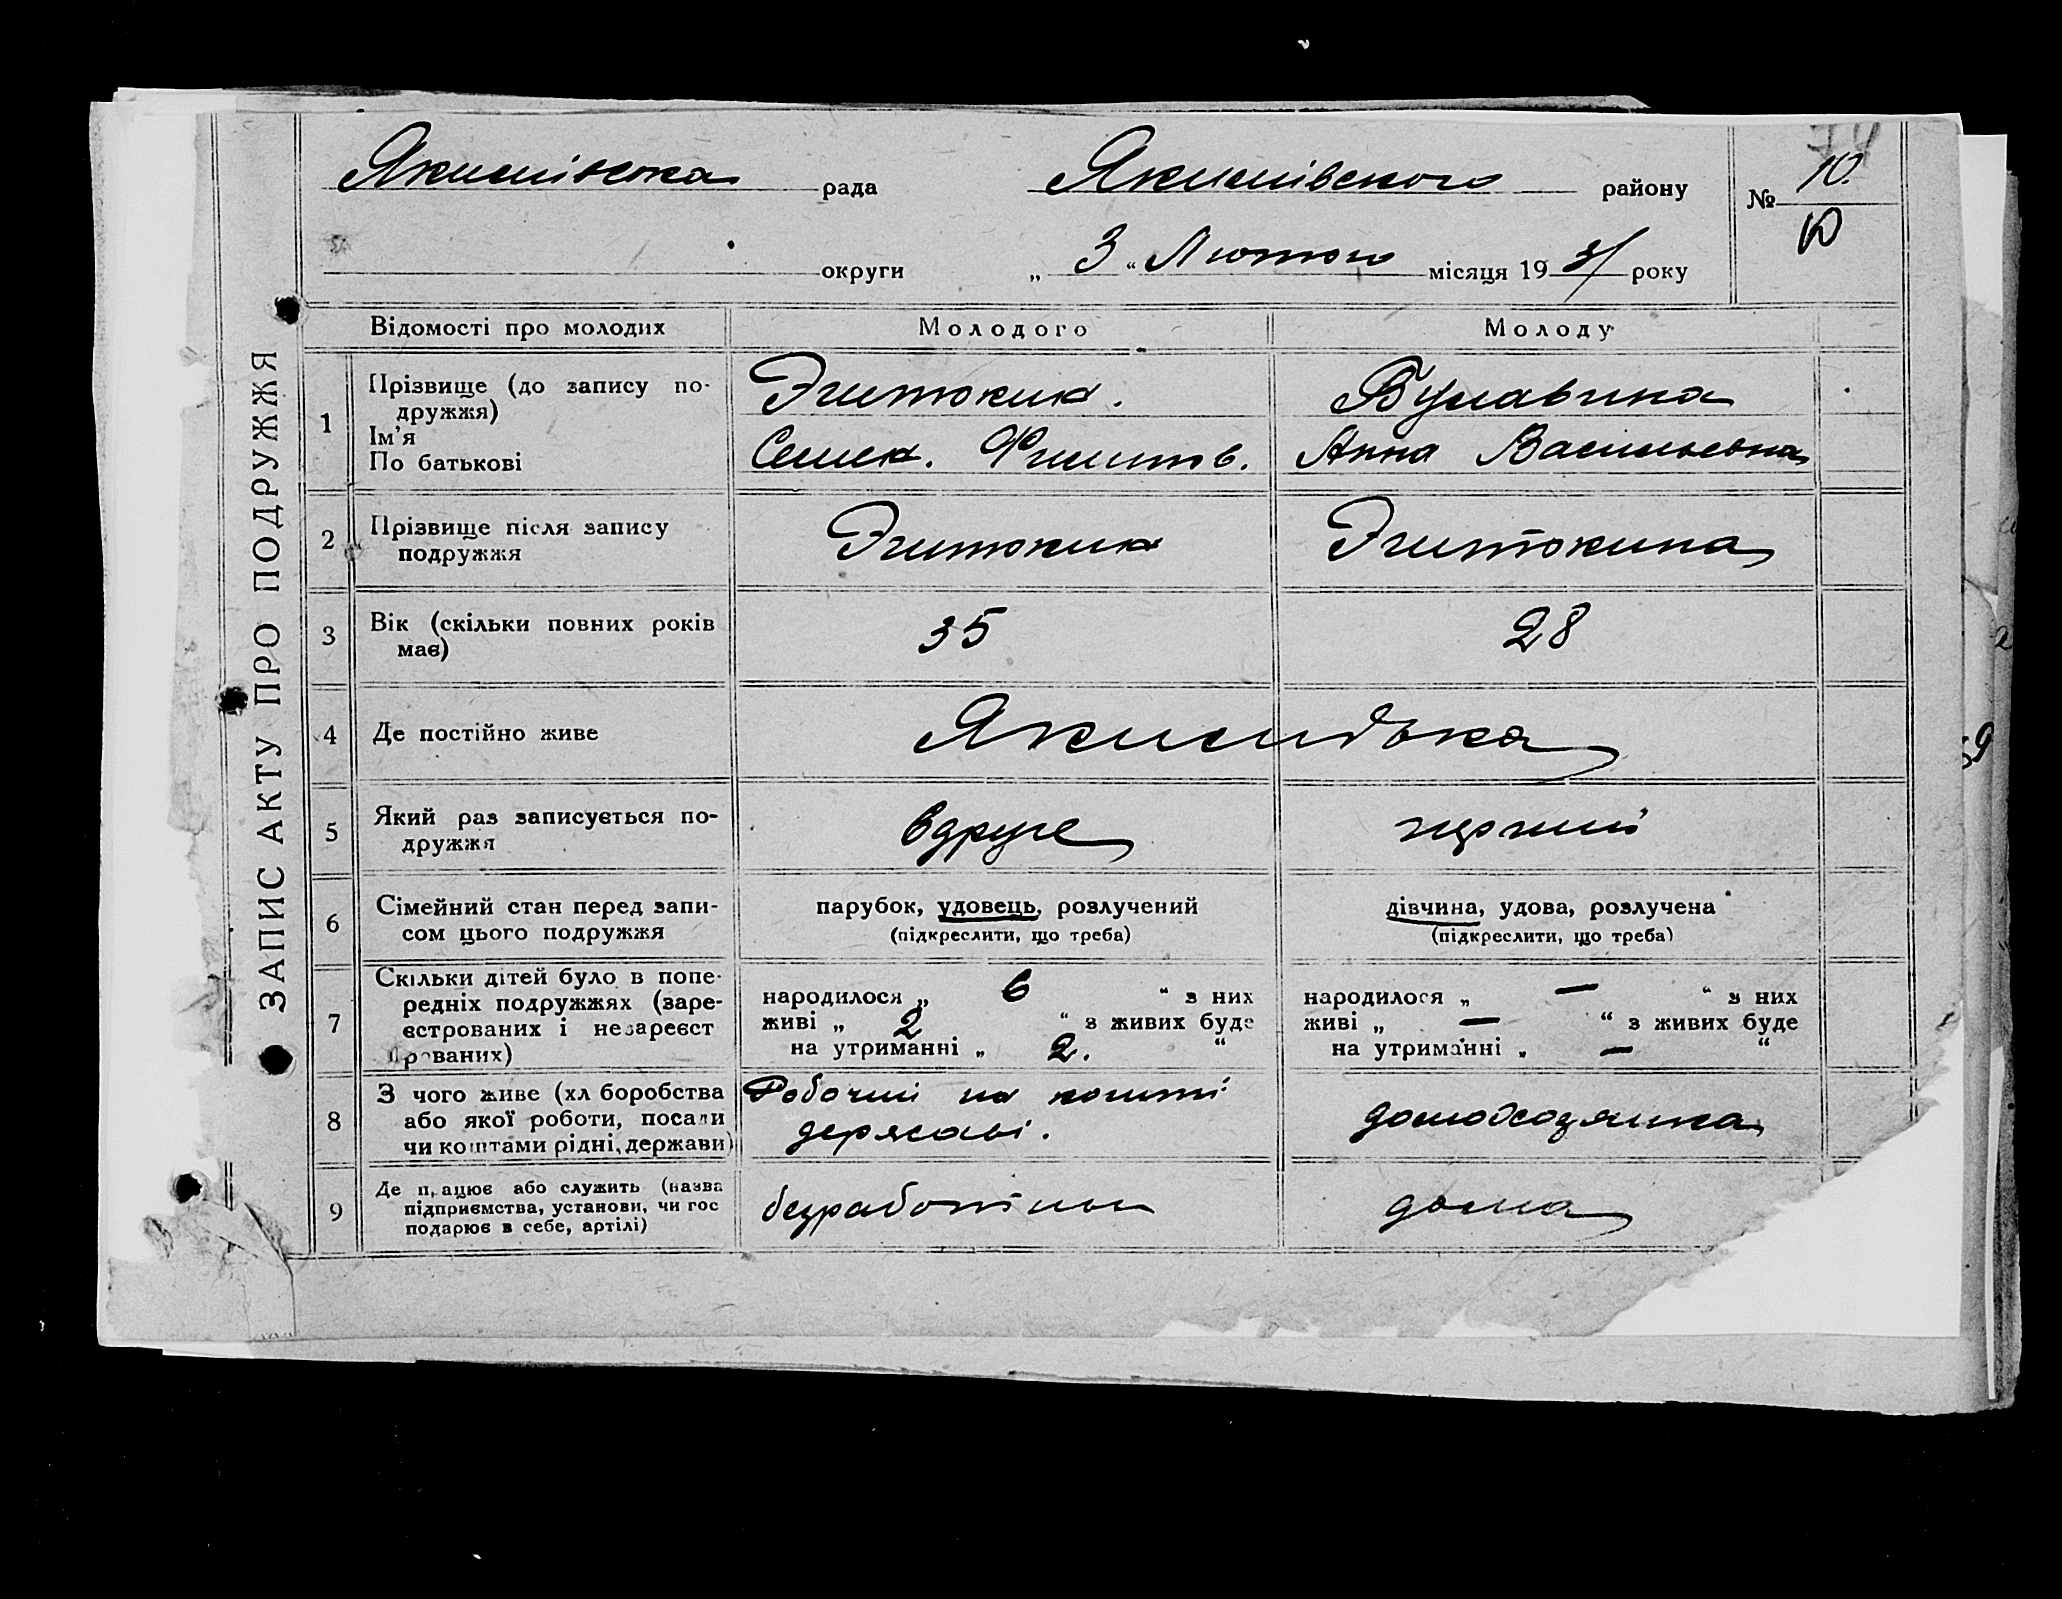 74
рада
Якимівського району
№ 10.
10
округи „ 3 “ Лютого місяця 19 31 року
ЗАПИС АКТУ ПРО ПОДРУЖЖЯ
Відомості про молодих
Молодого
Молоду
1
Прізвище (до запису по-
дружжя)
Ім'я
По батькові
Булавина
Семен. Филипов.
Анна Васильевна
2
Прізвище після запису
подружжя
3
Вік (скільки повних років
має)
35
28
4
Де постійно живе
Якимівка
5
Який раз записується по-
дружжя
вдруге
перший
6
Сімейний стан перед запи-
сом цього подружжя
парубок, удовець, розлучений
(підкреслити, що треба)
дівчина, удова, розлучена
(підкреслити, що треба)
7
Скільки дітей було в попе-
редніх подружжях (заре-
єстрованих і незареєст
рованих)
народилося „ 6 “ з них
живі „ 2 “ з живих буде
на утриманні „ 2. “
народилося „ — “ з них
живі „ — “ з живих буде
на утриманні „ — “
8
З чого живе (хліборобства
або якої роботи, посади
чи коштами рідні, держави)
Робочий на кошти
державі.
домохозяйка
9
Де працює або служить (назва
підприємства, установи, чи гос
подарює в себе, артілі)
безработный
дома